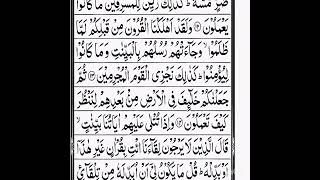 ضُرٍّ مَّسَّهٗ ؕ كَذٰلِكَ زُيِّنَ لِلْمُسْرِفِيْنَ مَا كَانُوْا
يَعْمَلُوْنَ ۝۱۲ وَلَقَدْ اَهْلَكْنَا الْقُرُوْنَ مِنْ قَبْلِكُمْ لَمَّا
ظَلَمُوْا ۙ وَجَآءَتْهُمْ رُسُلُهُمْ بِالْبَيِّنٰتِ وَمَا كَانُوْا
لِيُؤْمِنُوْا ؕ كَذٰلِكَ نَجْزِی الْقَوْمَ الْمُجْرِمِيْنَ ۝۱۳ ثُمَّ
جَعَلْنٰكُمْ خَلٰٓئِفَ فِی الْاَرْضِ مِنْۢ بَعْدِهِمْ لِنَنْظُرَ
كَيْفَ تَعْمَلُوْنَ ۝۱۴ وَاِذَا تُتْلٰی عَلَيْهِمْ اٰيَاتُنَا بَيِّنٰتٍ ۙ
قَالَ الَّذِيْنَ لَا يَرْجُوْنَ لِقَآءَنَا ائْتِ بِقُرْاٰنٍ غَيْرِ هٰذَاۤ
اَوْ بَدِّلْهُ ؕ قُلْ مَا يَكُوْنُ لِیْۤ اَنْ اُبَدِّلَهٗ مِنْ تِلْقَآئِ